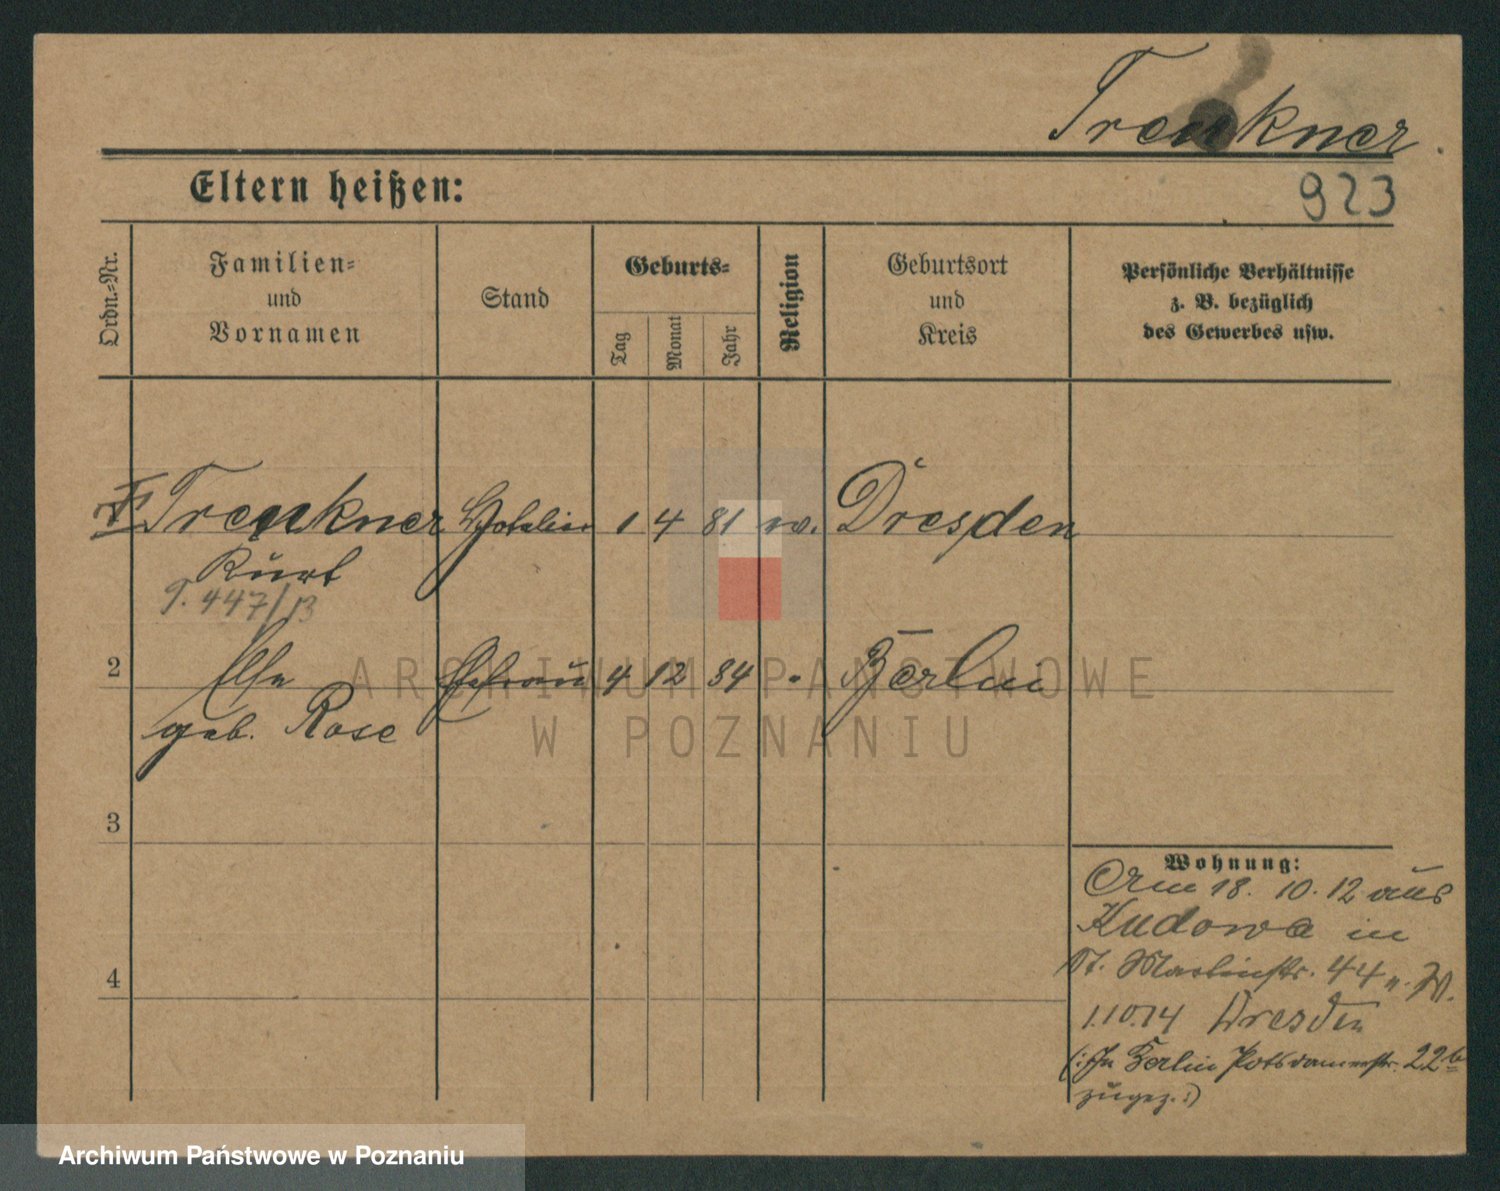 Trenkner.
Eltern heißen:
923
Ordn.-Nr.
Familien-
und
Vornamen
Stand
Geburts-
Tag
Monat
Jahr
Religion
Geburtsort
und
Kreis
Persönliche Verhältnisse
z. B. bezüglich
des Gewerbes usw.
Trenkner 1 4 81 Dresden
Kurt
447/13
2 Else Ehefrau 4 12 84 " Berlin
geb. Rose
3
4
Wohnung:
Am 18. 10. 12 aus
Kudowa in
St. Martinstr. 44 n. W.
1.10.14 Dresden
(: In Berlin Potsdamerstr. 22b
zugez. :)
ARCHIWUM PAŃSTWOWE
W POZNANIU
Archiwum Państwowe w Poznaniu